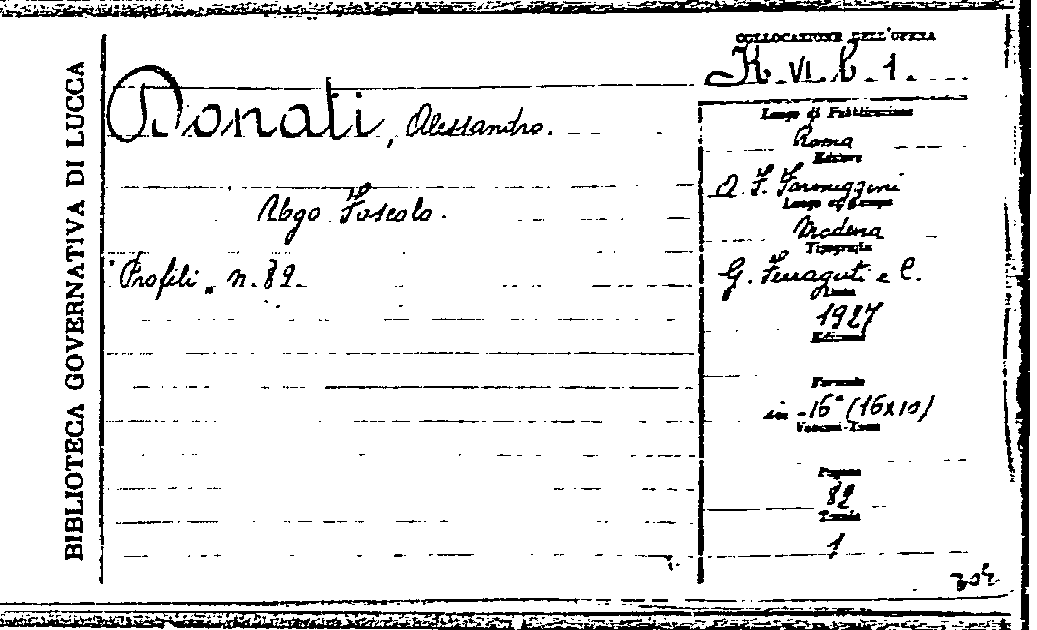 BIBLIOTECA GOVERNATIVA DI LUCCA
COLLOCAZIONE DELL'OPERA
K. VI. b. 1.
Donati, Alessandro.
Ugo Foscolo.
"Profili" n. 82.
Luogo di Pubblicazione
Roma
Editore
A. F. Formiggini
Luogo di Stampa
Modena
Tipografia
G. Ferraguti e C.
1927
Edizione
Formato
in-16° (16x10)
Pagine
82
Tavole
1